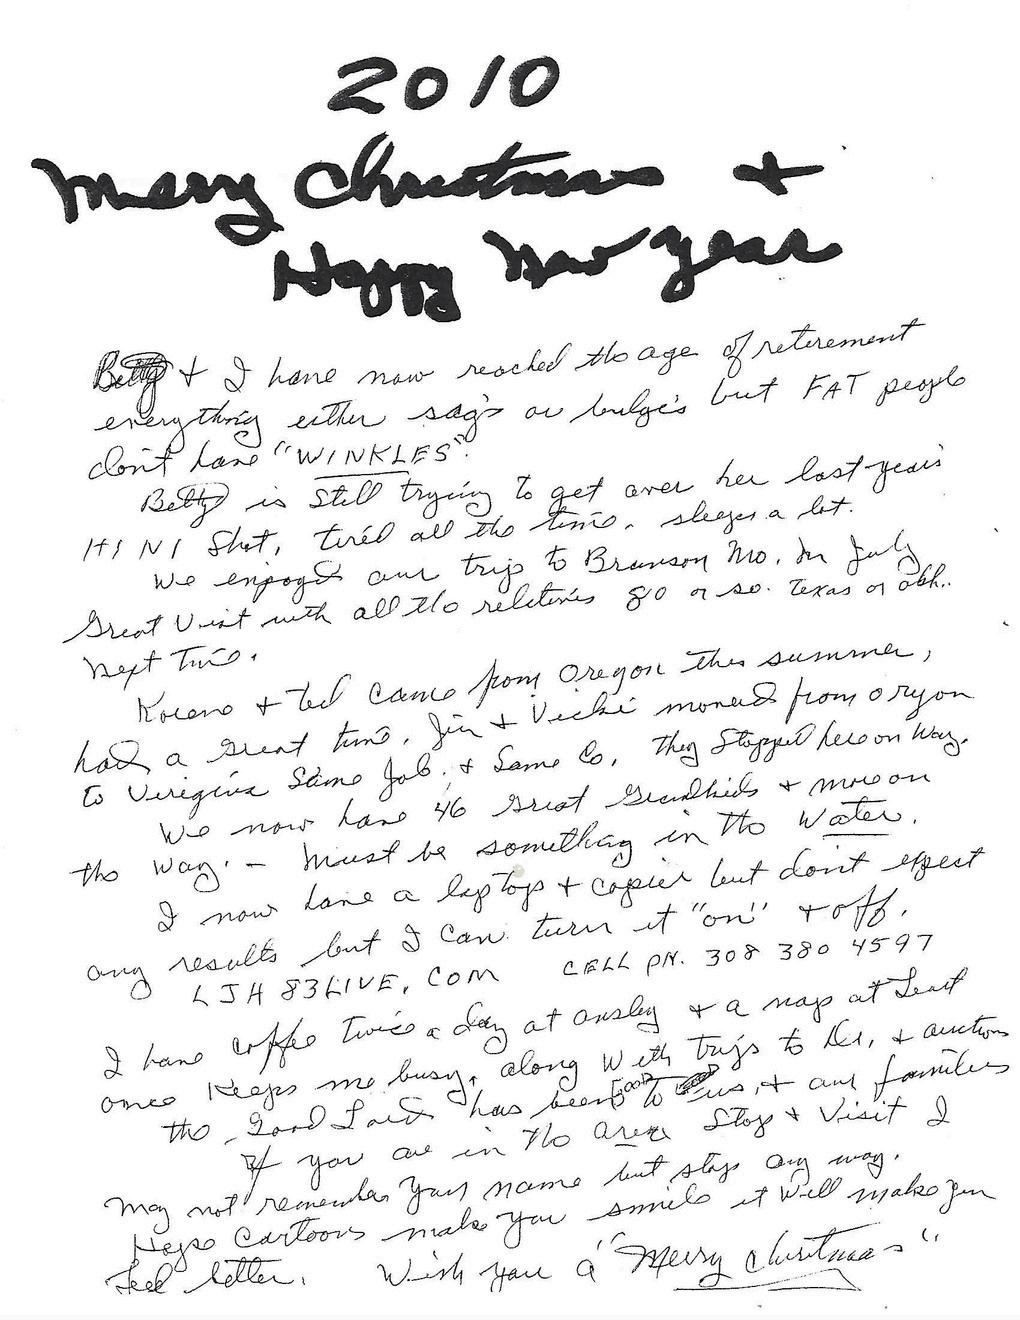 2010
Merry Christmas +
Happy New Year
Betty + I have now reached the age of retirement
everything either sag's or bulge's but FAT people
don't have "WINKLES".
Betty is still trying to get over her last year's
H1N1 Shot, tired all the time, sleeps a lot.
We enjoyed our trip to Branson Mo. In July
Great Visit with all the relatives 80 or so. Texas or okh..
next time.
Korene + Ted came from Oregon this summer,
had a great time. Jim + Vicki moved from oregon
to Viriginia Same Job, + Same Co, they Stopped here on Way.
We now have 46 great Grandkids + more on
the way. - Must be something in the Water.
I now have a laptop + copier but don't expect
any results but I can turn it "on" + off.
LJH83LIVE,COM CELL PH. 308 380 4597
I have coffee twice a day at ansley + a nap at Least
once Keeps me busy, along With trips to Dr., + auctions
the Good Lord has been good to us, + our families
If you are in the area Stop + Visit I
may not remember your name but stop any way.
Hope cartoons make you smile it Will make you
feel better. Wish you a "Merry Christmas"